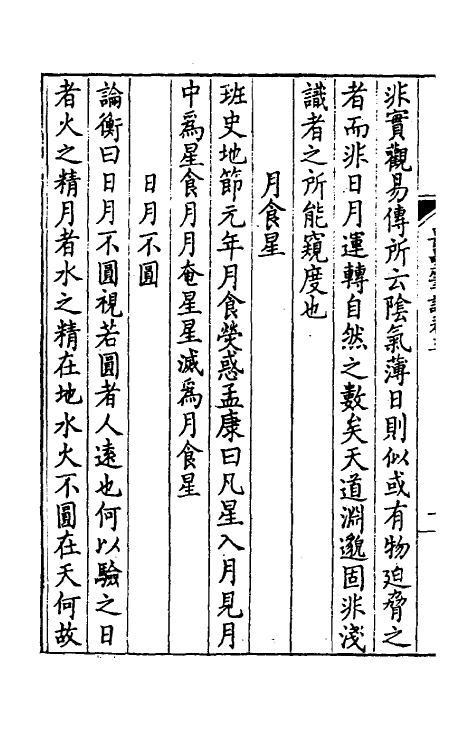 非實觀易傳所云陰氣薄日則似或有物迫脅之
者而非日月運轉自然之數矣天道淵邈固非淺
識者之所能窺度也
月食星
班史地節元年月食熒惑孟康曰凡星入月見月
中爲星食月月奄星星滅爲月食星
日月不圓
論衡曰日月不圓視若圓者人遠也何以驗之日
者火之精月者水之精在地水火不圓在天何故